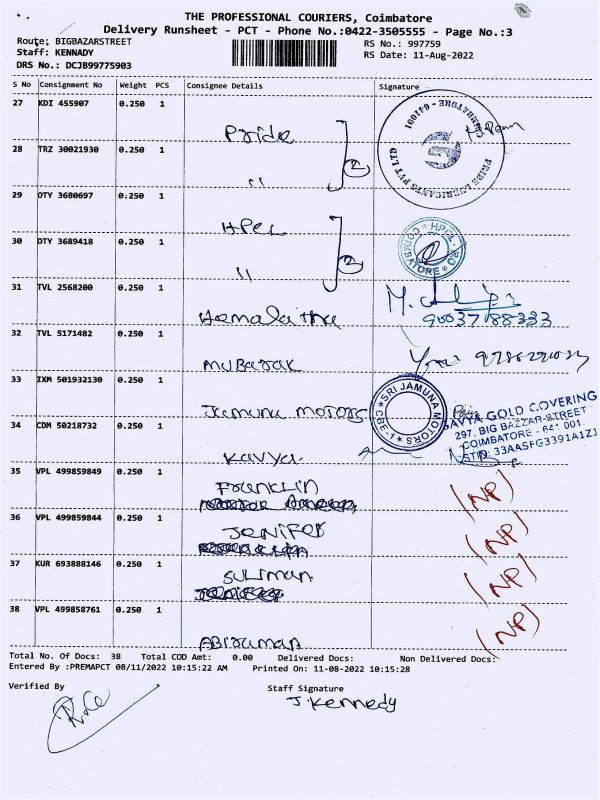 THE PROFESSIONAL COURIERS, Coimbatore
Delivery Runsheet - PCT - Phone No.:0422-3505555 - Page No.:3
Route: BIGBAZARSTREET
RS No.: 997759
Staff: KENNADY
RS Date: 11-Aug-2022
DRS No.: DCJB99775903
S No Consignment No Weight PCS Consignee Details Signature
27 KDI 455907 0.250 1
Pride
PRIDE LUBRICANTS PVT LTD COIMBATORE - 641001
28 TRZ 30021930 0.250 1
"
2
29 DTY 3680697 0.250 1
HPCL
HPCL COIMBATORE
30 DTY 3689418 0.250 1
"
2
31 TVL 2568200 0.250 1
Hemalatha
9003788333
32 TVL 5171482 0.250 1
Mubarak
33 IXM 501932130 0.250 1
Jamuna motors
SRI JAMUNA MOTORS CBE-1
34 CDM 50218732 0.250 1
Kavya
GOLD COVERING
297, BIG BAZZAR STREET
COIMBATORE - 641 001.
33AASFG3391A1Z1
35 VPL 499859849 0.250 1
Franklin
(NP)
36 VPL 499859844 0.250 1
Jenifer
(NP)
37 KUR 693888146 0.250 1
Suliman
(NP)
38 VPL 499858761 0.250 1
Abiruman
(NP)
Total No. Of Docs: 38 Total COD Amt: 0.00 Delivered Docs: Non Delivered Docs:
Entered By :PREMAPCT 08/11/2022 10:15:22 AM Printed On: 11-08-2022 10:15:28
Verified By Staff Signature
J. Kennedy